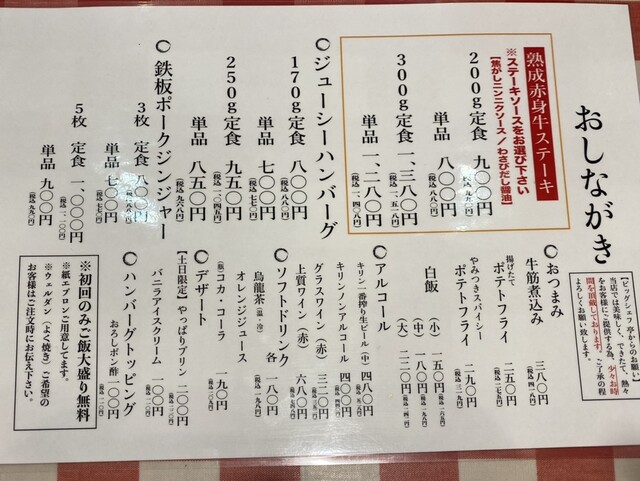 おしながき
【ビッグシェフからのお願い】
当店では美味しく、できたて、熱々
をお客様にご提供する為、少々お時
間を頂戴しております。ご了承の程
よろしくお願い致します。
熟成赤身牛ステーキ
※ステーキソースをお選び下さい
【焦がしニンニクソース/わさびだし醤油】
200g 定食 九〇〇円
(税込 九九〇円)
単品 八〇〇円
(税込 八八〇円)
300g 定食 一、三八〇円
(税込 一、五一八円)
単品 一、二八〇円
(税込 一、四〇八円)
〇ジューシーハンバーグ
170g 定食 八〇〇円
(税込 八八〇円)
単品 七〇〇円
(税込 七七〇円)
250g 定食 九五〇円
(税込 一、〇四五円)
単品 八五〇円
(税込 九三五円)
〇鉄板ポークジンジャー
3枚 定食 八〇〇円
(税込 八八〇円)
単品 七〇〇円
(税込 七七〇円)
5枚 定食 一、〇〇〇円
(税込 一、一〇〇円)
単品 九〇〇円
(税込 九九〇円)
〇おつまみ
牛筋煮込み 三八〇円
(税込 四一八円)
揚げたて
ポテトフライ 二五〇円
(税込 二七五円)
やみつきスパイシー
ポテトフライ 二九〇円
(税込 三一九円)
白飯 (小) 一五〇円
(税込 一六五円)
(中) 一八〇円
(税込 一九八円)
(大) 二二〇円
(税込 二四二円)
〇アルコール
キリン一番搾り生ビール(中) 四八〇円
(税込 五二八円)
キリンノンアルコール 四〇〇円
(税込 四四〇円)
グラスワイン(赤) 三二〇円
(税込 三五二円)
上質ワイン(赤) 六八〇円
(税込 七四八円)
〇ソフトドリンク
各 一八〇円
(税込 一九八円)
烏龍茶(温・冷)
オレンジジュース
(瓶)コカ・コーラ 一九〇円
(税込 二〇九円)
〇デザート
【土日限定】やっぱりプリン 二〇〇円
(税込 二二〇円)
バニラアイスクリーム 一〇〇円
(税込 一一〇円)
〇ハンバーグトッピング
おろしポン酢 一〇〇円
(税込 一一〇円)
※初回のみご飯大盛り無料
※紙エプロンご用意してます。
※ウェルダン(よく焼き)ご希望の
お客様はご注文時にお伝え下さい。